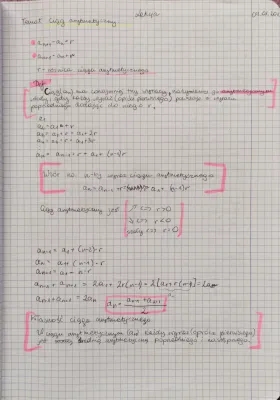 Temat: Ciąg arytmetyczny
lekcja
aₙ₊₁ = aₙ + r
aₙ₊₁ - aₙ = r
r - różnica ciągu arytmetycznego
Def.
Ciąg (aₙ) ma co najmniej trzy wyrazy, nazywamy go arytmetycznym
wtedy, gdy każdy wyraz (oprócz pierwszego) powstaje z wyrazu
poprzedniego dodając do niego r.
a₁
a₂ = a₁ + r
a₃ = a₂ + r = a₁ + 2r
a₄ = a₃ + r = a₁ + 3r
aₙ = aₙ₋₁ + r = a₁ + (n-1)·r
Wzór na n-ty wyraz ciągu arytmetycznego
aₙ = a₁ + (n-1)·r
Ciąg arytmetyczny jest
↗ ⇔ r>0
↘ ⇔ r<0
stały ⇔ r=0
aₙ₋₁ = a₁ + (n-2)·r
aₙ = a₁ + (n-1)·r
aₙ₊₁ = a₁ + n·r
aₙ₋₁ + aₙ₊₁ = 2a₁ + 2r(n-1) = 2[a₁ + r(n-1)] = 2aₙ
aₙ₋₁ + aₙ₊₁ = 2aₙ
aₙ = (aₙ₋₁ + aₙ₊₁)/2
Własność ciągu arytmetycznego
W ciągu arytmetycznym (aₙ) każdy wyraz (oprócz pierwszego)
jest średnią arytmetyczną poprzedniego i następnego.